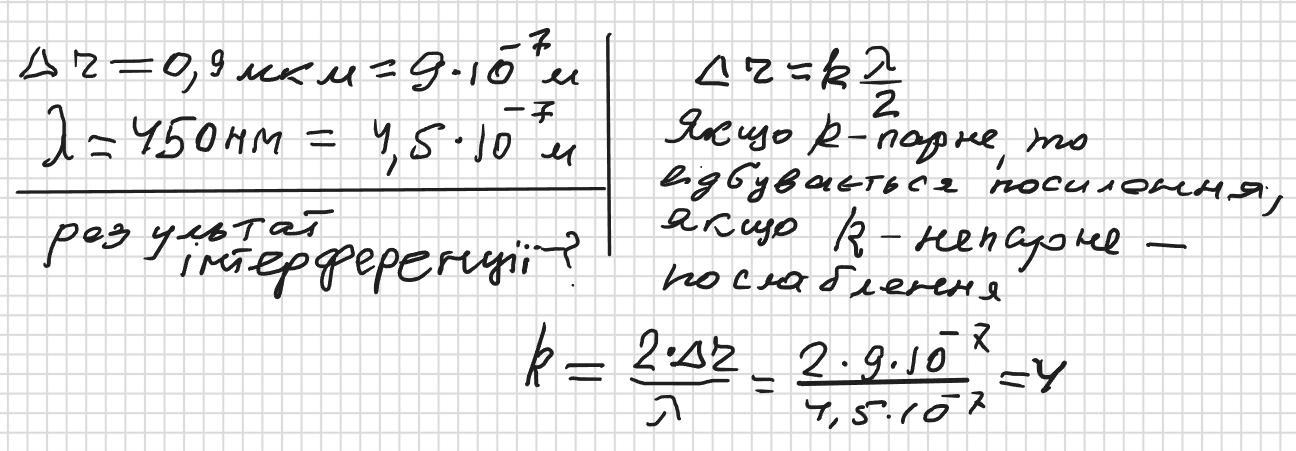 Δr = 0,9 мкм = 9·10⁻⁷ м
λ = 450 нм = 4,5·10⁻⁷ м
результат
інтерференції - ?
Δr = k λ/2
Якщо k - парне, то
відбувається посилення,
якщо k - непарне —
послаблення
k = 2·Δr/λ = 2·9·10⁻⁷/4,5·10⁻⁷ = 4